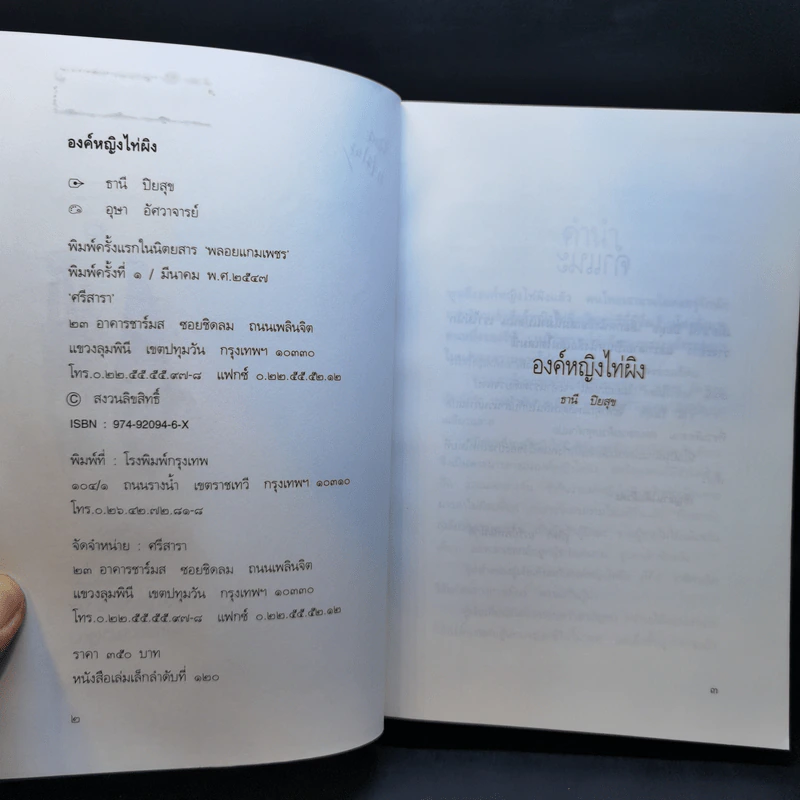 องค์หญิงไท่ผิง
ธานี ปิยสุข
อุษา อัศวาจารย์
พิมพ์ครั้งแรกในนิตยสาร 'พลอยแกมเพชร'
พิมพ์ครั้งที่ ๑ / มีนาคม พ.ศ.๒๕๔๗
'ศรีสารา'
๒๓ อาคารชาร์มส ซอยชิดลม ถนนเพลินจิต
แขวงลุมพินี เขตปทุมวัน กรุงเทพฯ ๑๐๓๓๐
โทร.๐.๒๒.๕๕.๕๕.๙๗-๘ แฟกซ์ ๐.๒๒.๕๕.๕๒.๑๒
© สงวนลิขสิทธิ์
ISBN : 974-92094-6-X
พิมพ์ที่ : โรงพิมพ์กรุงเทพ
๑๐๔/๑ ถนนรางน้ำ เขตราชเทวี กรุงเทพฯ ๑๐๓๑๐
โทร.๐.๒๖.๔๒.๗๒.๘๑-๘
จัดจำหน่าย : ศรีสารา
๒๓ อาคารชาร์มส ซอยชิดลม ถนนเพลินจิต
แขวงลุมพินี เขตปทุมวัน กรุงเทพฯ ๑๐๓๓๐
โทร.๐.๒๒.๕๕.๕๕.๙๗-๘ แฟกซ์ ๐.๒๒.๕๕.๕๒.๑๒
ราคา ๓๕๐ บาท
หนังสือเล่มเล็กลำดับที่ ๑๒๐
๒
องค์หญิงไท่ผิง
ธานี ปิยสุข
๓